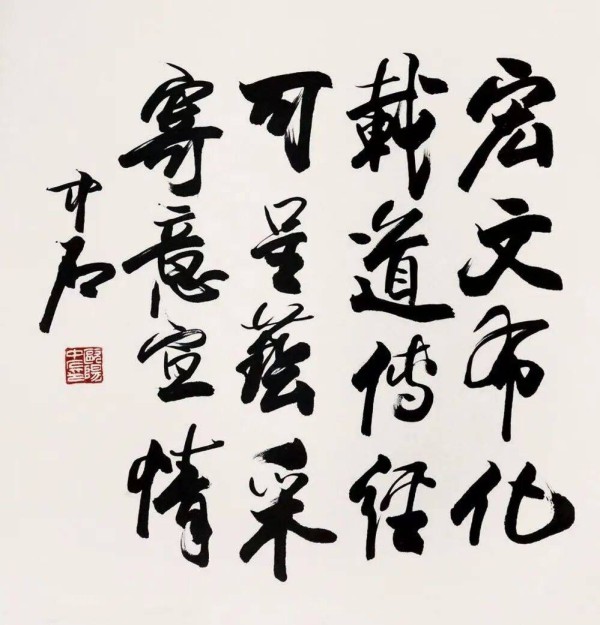 宏文布化
載道傳经
可呈藝采
寄意宣情
中石
歐陽中石